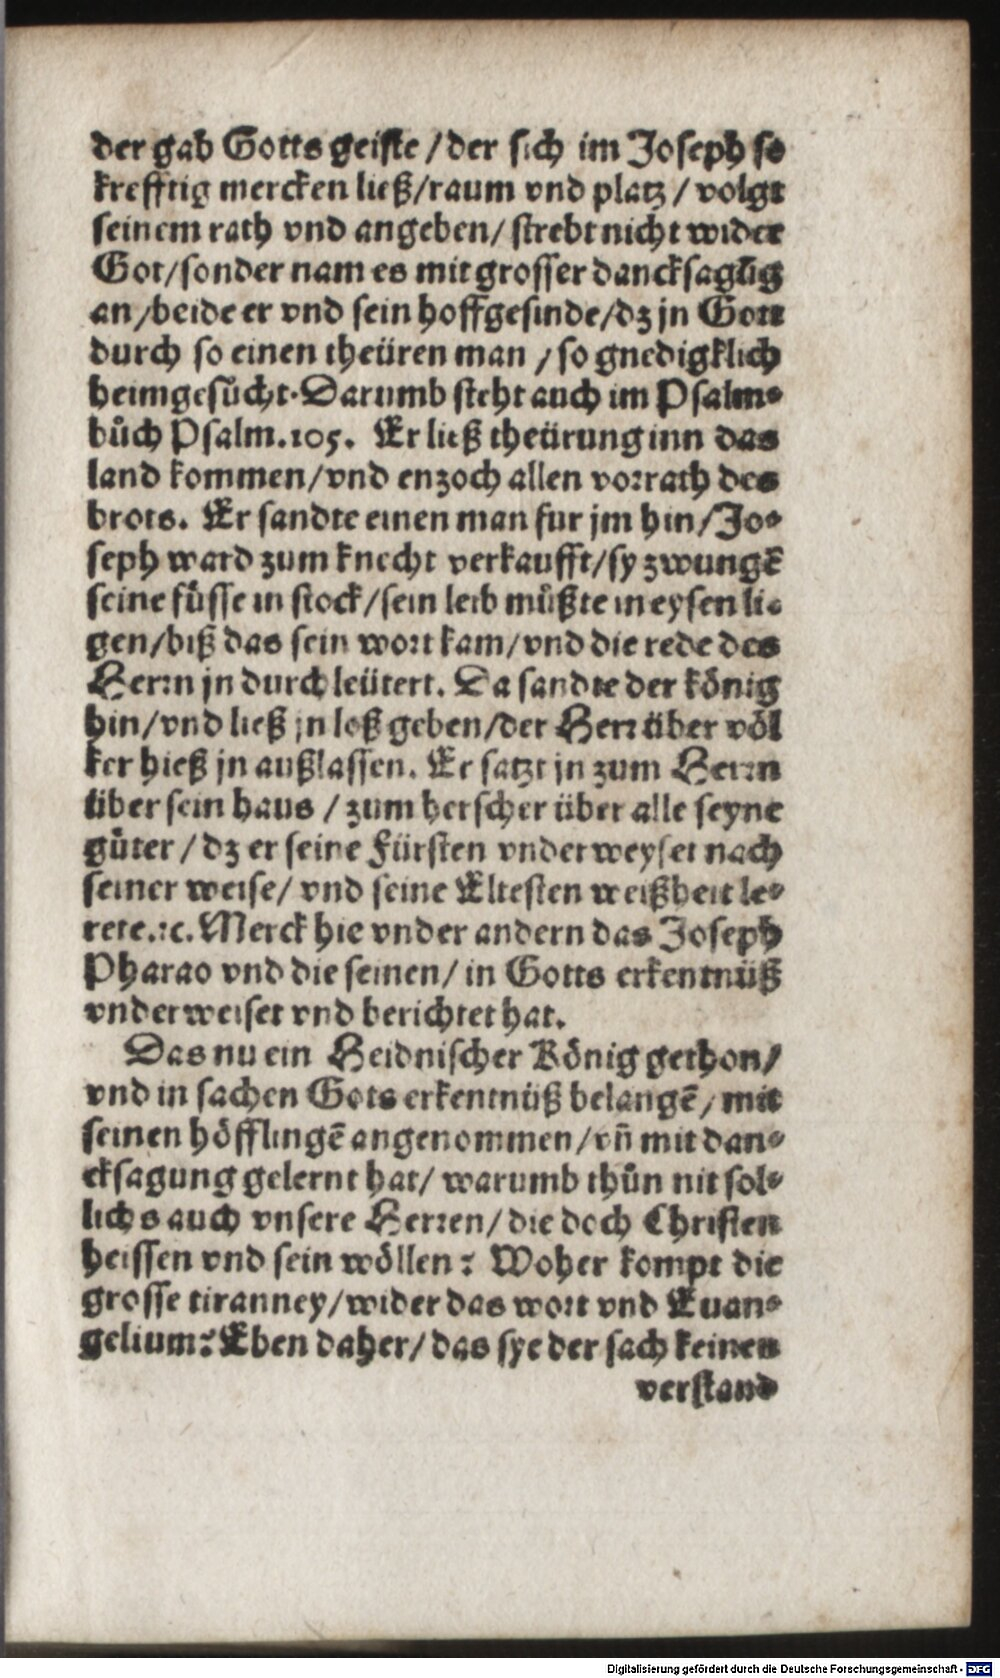 der gab Gotts geiste / der sich im Joseph so
krefftig mercken ließ/raum vnd platz / volgt
seinem rath vnd angeben/ strebt nicht wider
Got/sonder nam es mit grosser dancksagũg
an/beide er vnd sein hoffgesinde/dz jn Gott
durch so einen theüren man / so gnedigklich
heimgesůcht. Darumb steht auch im Psalm-
bůch Psalm.105. Er ließ theürung inn das
land kommen/vnd enzoch allen vorrath des
brots. Er sandte einen man fur jm hin/Jo-
seph ward zum knecht verkaufft/sy zwungẽ
seine fůsse in stock/sein leib můßte in eysen li-
gen/biß das sein wort kam/vnd die rede des
Herrn jn durchleütert. Da sandte der kőnig
hin/vnd ließ jn loß geben/der Herr über vől
ker hieß jn außlassen. Er satzt jn zum Herrn
über sein haus / zum herscher über alle seyne
gůter / dz er seine Fürsten vnderweyset nach
seiner weise/ vnd seine Eltesten weißheit le-
rete.ꝛc. Merck hie vnder andern das Joseph
Pharao vnd die seinen/ in Gotts erkentnüß
vnderweiset vnd berichtet hat.
Das nu ein Heidnischer Kőnig gethon/
vnd in sachen Gots erkentnüß belangẽ/ mit
seinen hőfflingẽ angenommen/vñ mit dan-
cksagung gelernt hat/ warumb thůn nit sol-
lichs auch vnsere Herren/ die doch Christen
heissen vnd sein wőllen? Woher kompt die
grosse tiranney/wider das wort vnd Euan-
gelium? Eben daher/ das sye der sach keinen
verstand
Digitalisierung gefördert durch die Deutsche Forschungsgemeinschaft - DFG